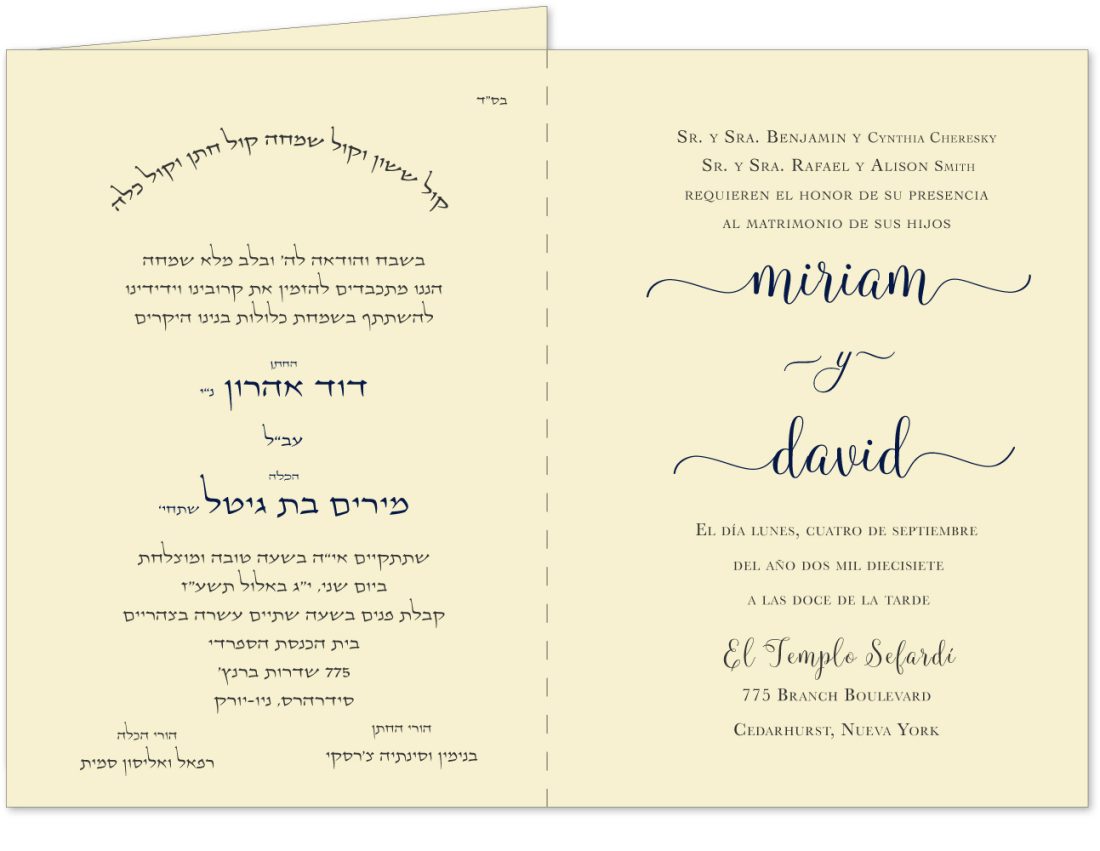 בס"ד
קול ששון וקול שמחה קול חתן וקול כלה
בשבח והודאה לה' ובלב מלא שמחה
הננו מתכבדים להזמין את קרובינו וידידינו
להשתתף בשמחת כלולות בנינו היקרים
החתן
דוד אהרון נ"י
עב"ל
הכלה
מירים בת גיטל שתחי'
שתתקיים אי"ה בשעה טובה ומוצלחת
ביום שני, י"ג באלול תשע"ז
קבלת פנים בשעה שתיים עשרה בצהריים
בית הכנסת הספרדי
775 שדרות ברנץ'
סידרהרס, ניו-יורק
הורי החתן
בנימין וסינתיה צ'רסקי
הורי הכלה
רפאל ואליסון סמית
Sr. y Sra. Benjamin y Cynthia Cheresky
Sr. y Sra. Rafael y Alison Smith
requieren el honor de su presencia
al matrimonio de sus hijos
miriam
y
david
El día lunes, cuatro de septiembre
del año dos mil diecisiete
a las doce de la tarde
El Templo Sefardí
775 Branch Boulevard
Cedarhurst, Nueva York